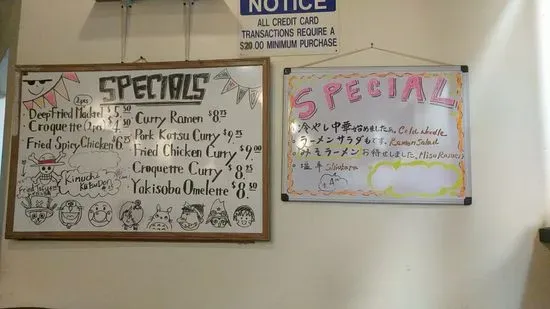 NOTICE
ALL CREDIT CARD
TRANSACTIONS REQUIRE A
$20.00 MINIMUM PURCHASE
SPECIALS
(2pcs)
Deep Fried Mackerel $5.50
Croquette (2pcs)
Fried Spicy Chicken $6.25
Kimuchi
Curry Ramen $8.75
Pork Katsu Curry $9.75
Fried Chicken Curry $9.00
Croquette Curry $8.
Yakisoba Omelette $8.50
SPECIAL
冷やし中華始めました。Cold Noodle
ラーメンサラダもです。Ramen Salad
みそラーメンお待せしました。Miso Ramen
塩辛 Shiokara